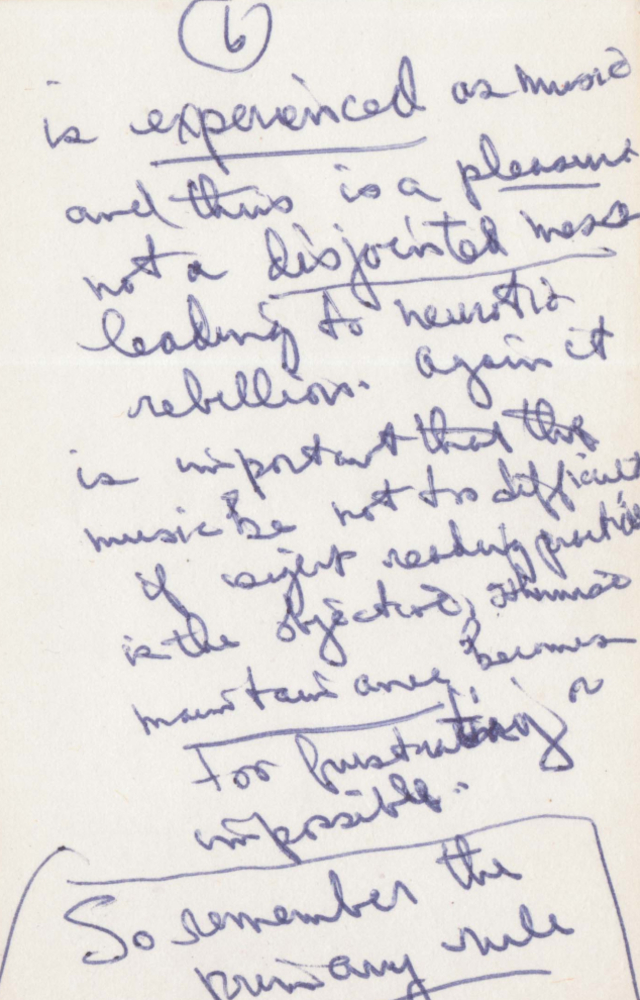 6
is experienced as music
and thus is a pleasure
not a disjointed mess
leading to neurotic
rebellion. again it
is important that the
music be not too difficult
if sight reading practice
is the objective,
maintainance becomes
too frustrating
impossible.
So remember the
primary rule